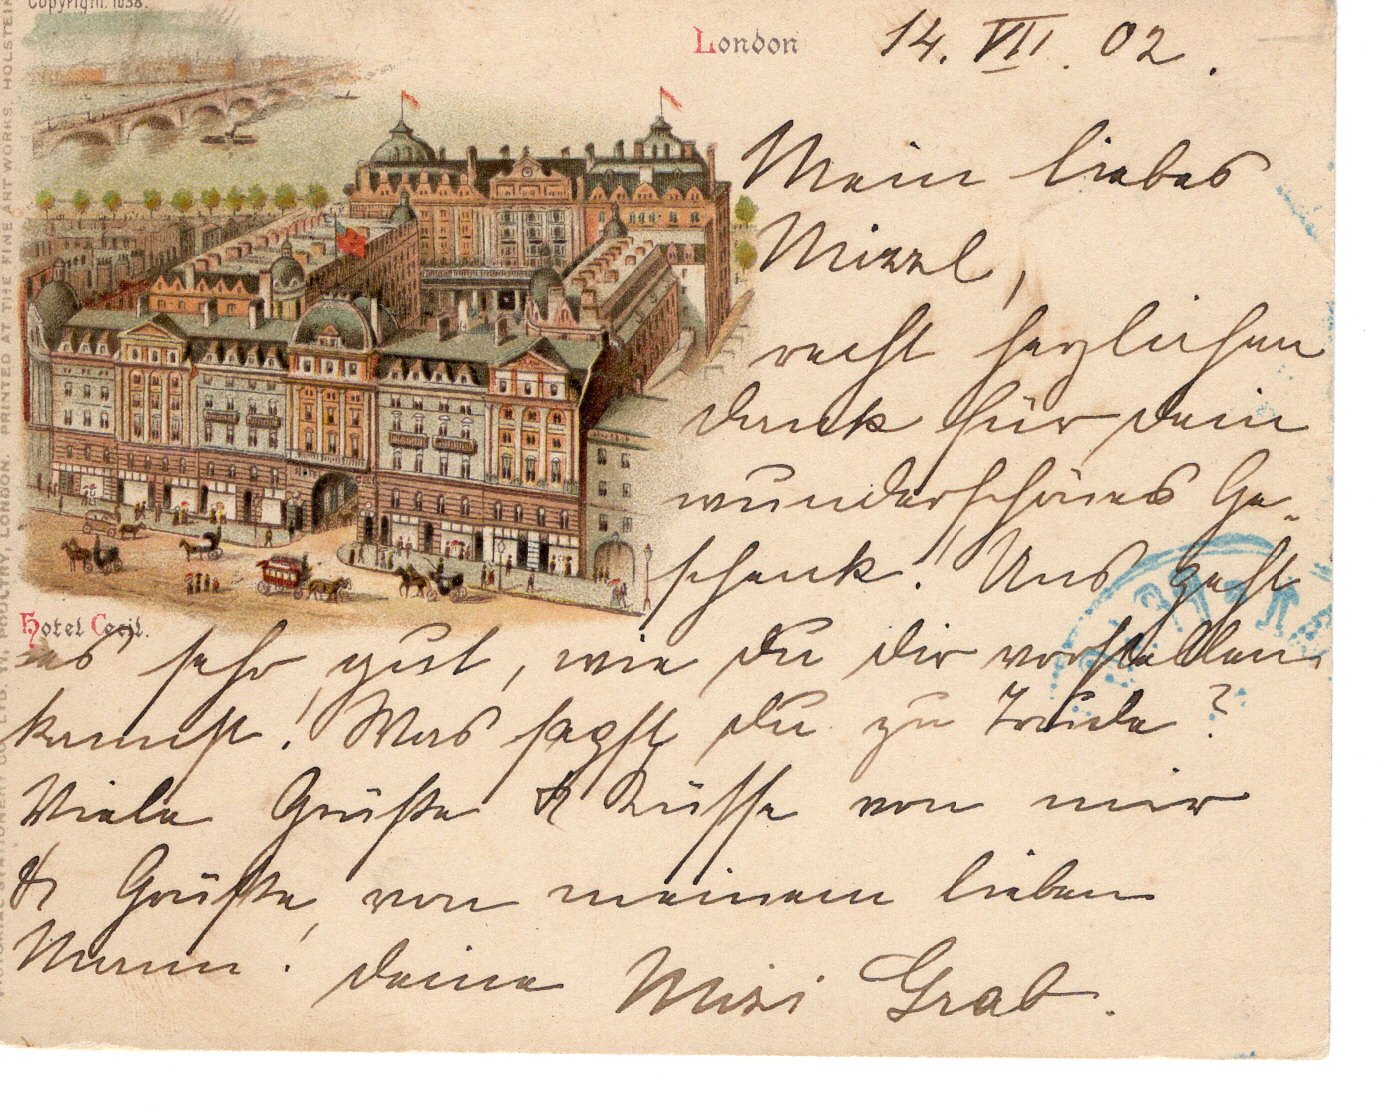 Copyright. 1638.
London 14. VII. 02.
Mein liebes
Mizzl,
recht herzlichen
Dank für dein
wunderschönes Ge-
schenk! Uns geht
Hotel Cecil.
es sehr gut, wie du dir vorstellen
kannst! Was sagst du zu Trude?
Viele Grüße & Küsse von mir
& Grüße von meinem lieben
Mann! deine Mizi Grab.
PICTORIAL STATIONERY CO. LTD. POULTRY, LONDON. PRINTED AT THE FINE ART WORKS, HOLSTEIN